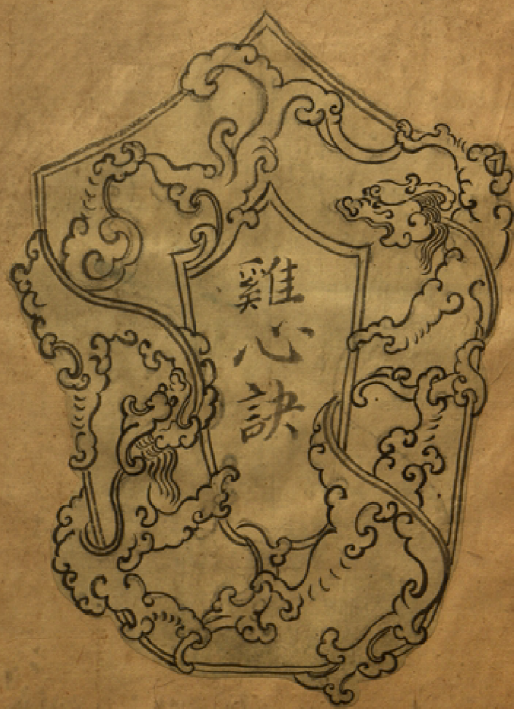 雞心訣